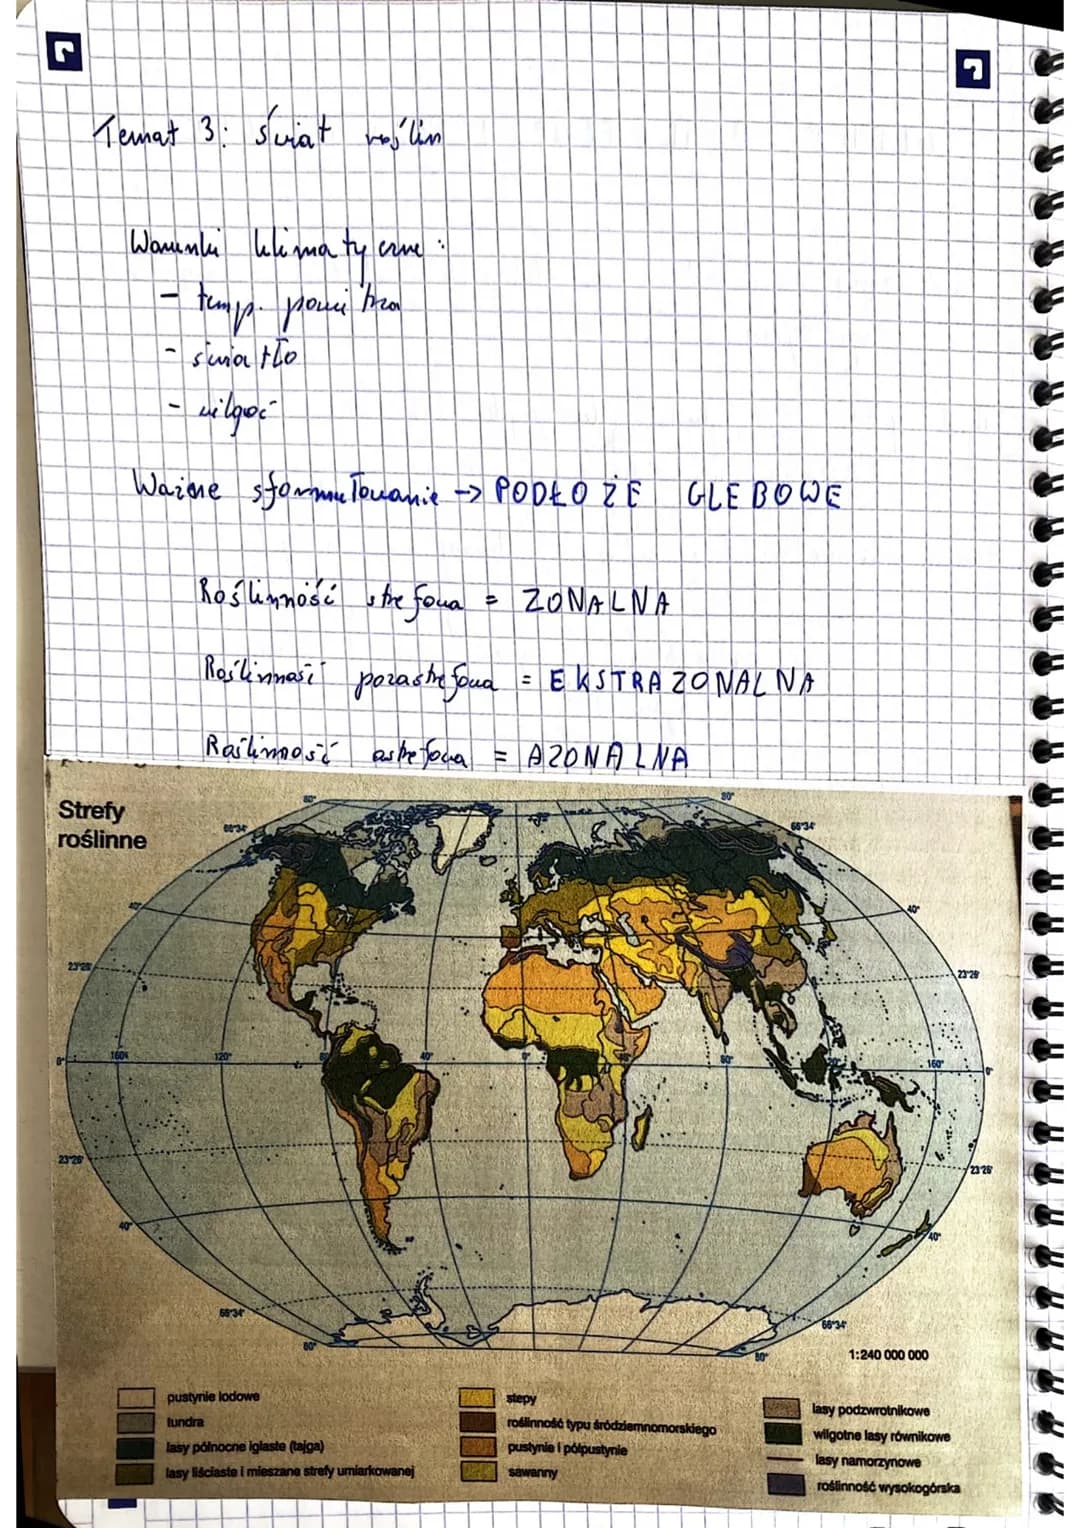 Temat 3: świat roślin
Warunki klimatyczne:
- temp. powietrza
- światło
- wilgoć
Ważne sformułowanie → PODŁOŻE GLEBOWE
Roślinność strefowa = ZONALNA
Roślinność pozastrefowa = EKSTRAZONALNA
Roślinność astrefowa = AZONALNA
Strefy
roślinne
80°
80°
66°34'
66°34'
40°
40°
23°26'
23°26'
0°
160°
120°
80°
40°
0°
40°
80°
120°
160°
0°
23°26'
23°26'
40°
40°
66°34'
66°34'
80°
80°
1:240 000 000
pustynie lodowe
tundra
lasy północne iglaste (tajga)
lasy liściaste i mieszane strefy umiarkowanej
stepy
roślinność typu śródziemnomorskiego
pustynie i półpustynie
sawanny
lasy podzwrotnikowe
wilgotne lasy równikowe
lasy namorzynowe
roślinność wysokogórska